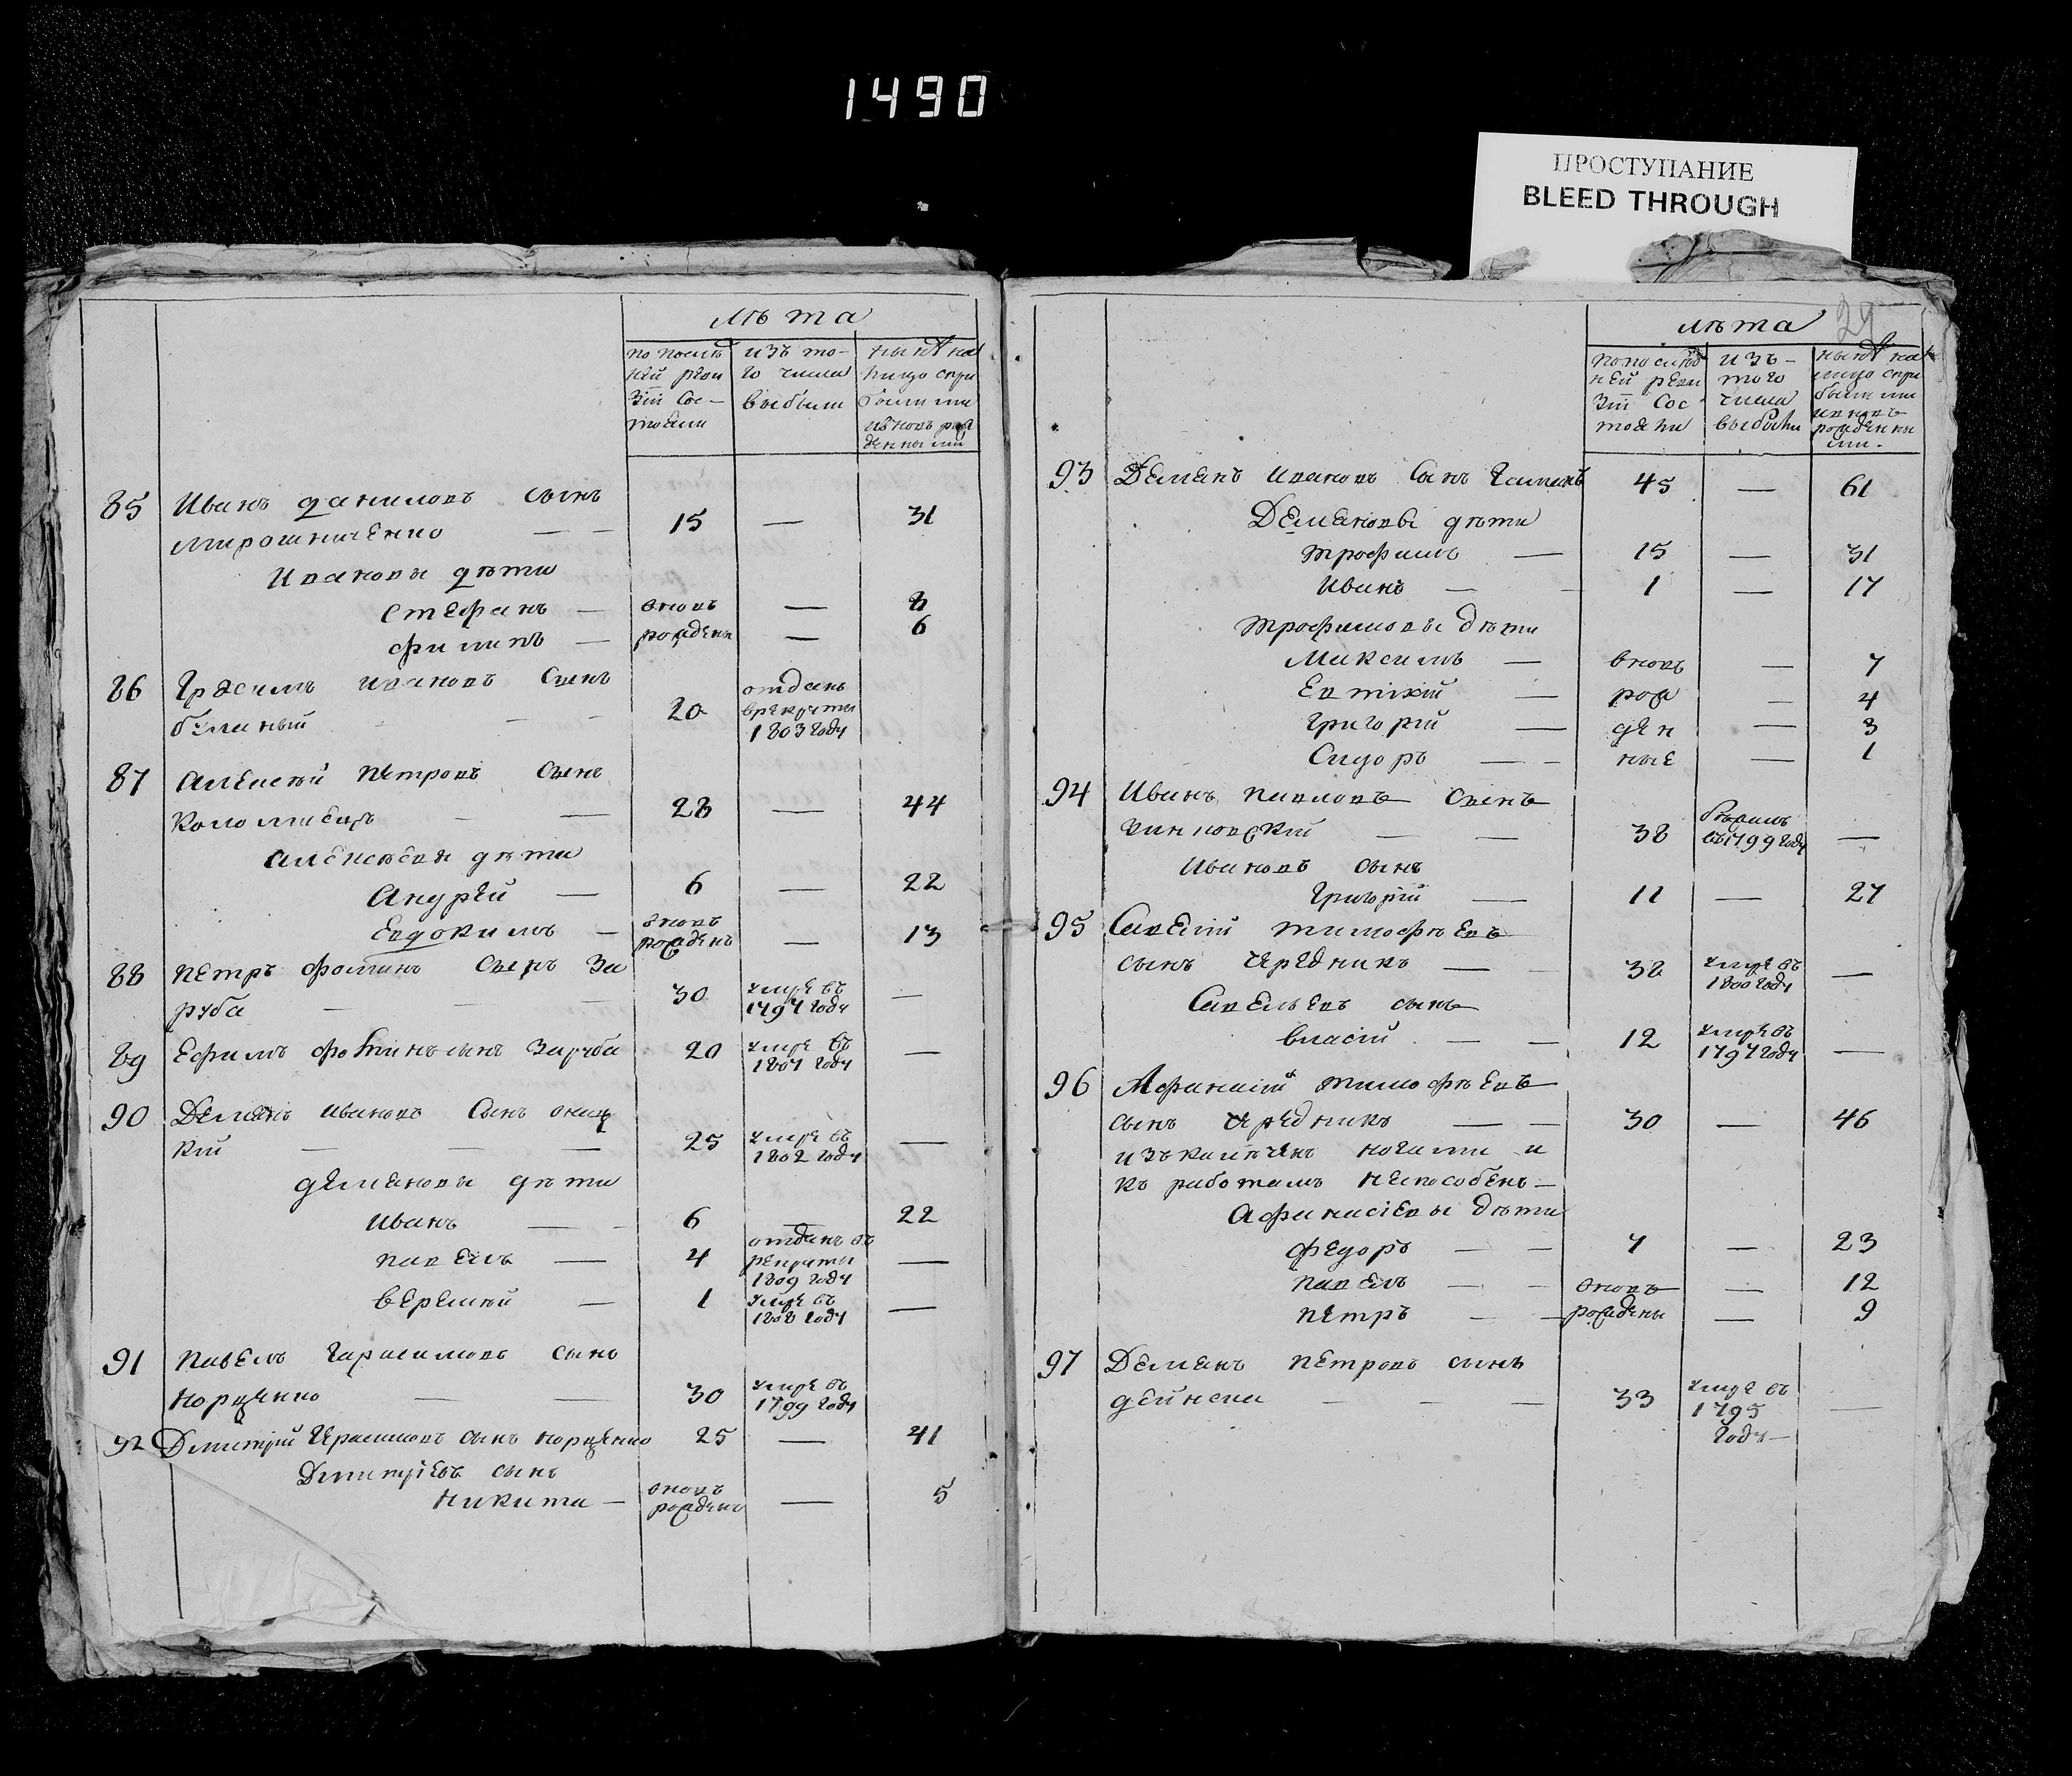 1490
ПРОСТУПАНИЕ
BLEED THROUGH
лѣта
по послѣд изъ то- нынѣ на
ней реви го числа лицо спри
зіи сос- выбыли былыми
тояли ивновь рож
денными
85 Иванъ даниловъ сынъ
мирошниченко — — 15 — 31
Ивановы дѣти
стефанъ — вновь — 8
филипъ — рождены — 6
86 Герасимъ ивановъ сынъ отданъ
бѣлый — — 20 врекруты
1803 году
87 алексѣй петровъ сынъ
коломиецъ — — 28 — 44
алексѣевы дѣти
андрей — 6 — 22
Евдокимъ — вновь
рожденъ — 13
88 петръ фоминъ сынъ За
руба — — 30 умре въ —
1797 году
89 Ефимъ фоминъ сынъ Заруба 20 умре въ —
1807 году
90 Деманъ ивановъ сынъ
кій — — — 25 умре въ —
1802 году
демановы дѣти
иванъ — 6 — 22
павелъ — 4 отданъ въ
рекруты —
1809 году
Веремѣй — 1 умре въ —
1808 году
91 павелъ гарасимовъ сынъ
норценко — — 30 умре въ
1799 году
92 Дмитрій Герасимовъ сынъ норценко 25 — 41
Дмитріевъ сынъ
никита — вновь
рожденъ — 5
29
лѣта
по послѣд изъ- нынѣ на
ней реви того лицо спри
зіи сос числа былыми
тояли выбыли ивновь
рожденны
ми.
93 Деманъ ивановъ сынъ 45 — 61
Демановы дѣти
трофимъ — 15 — 31
иванъ — 1 — 17
трофимовы дѣти
максимъ — вновь — 7
Евтихій — рож — 4
григорій — ден — 3
Сидоръ — ные — 1
94 Иванъ павловъ сынъ
винновскій — — 38 бѣжалъ
въ 1799 году —
ивановъ сынъ
григорій — 11 — 27
95 Савелій тимофѣевъ
сынъ чередникъ — — 38 умре въ
1800 году —
Савельевъ сынъ
власій — — 12 умре въ
1797 году —
96 Афанасій тимофѣевъ
сынъ чередникъ — — 30 — 46
изъкалѣченъ ногами и
къ работамъ неспособенъ —
афанасіевы дѣти
федоръ — — 7 — 23
павелъ — — вновь — 12
петръ — — рождены — 9
97 Деманъ петровъ сынъ
дейнека — — — 33 умре въ
1795 —
году —